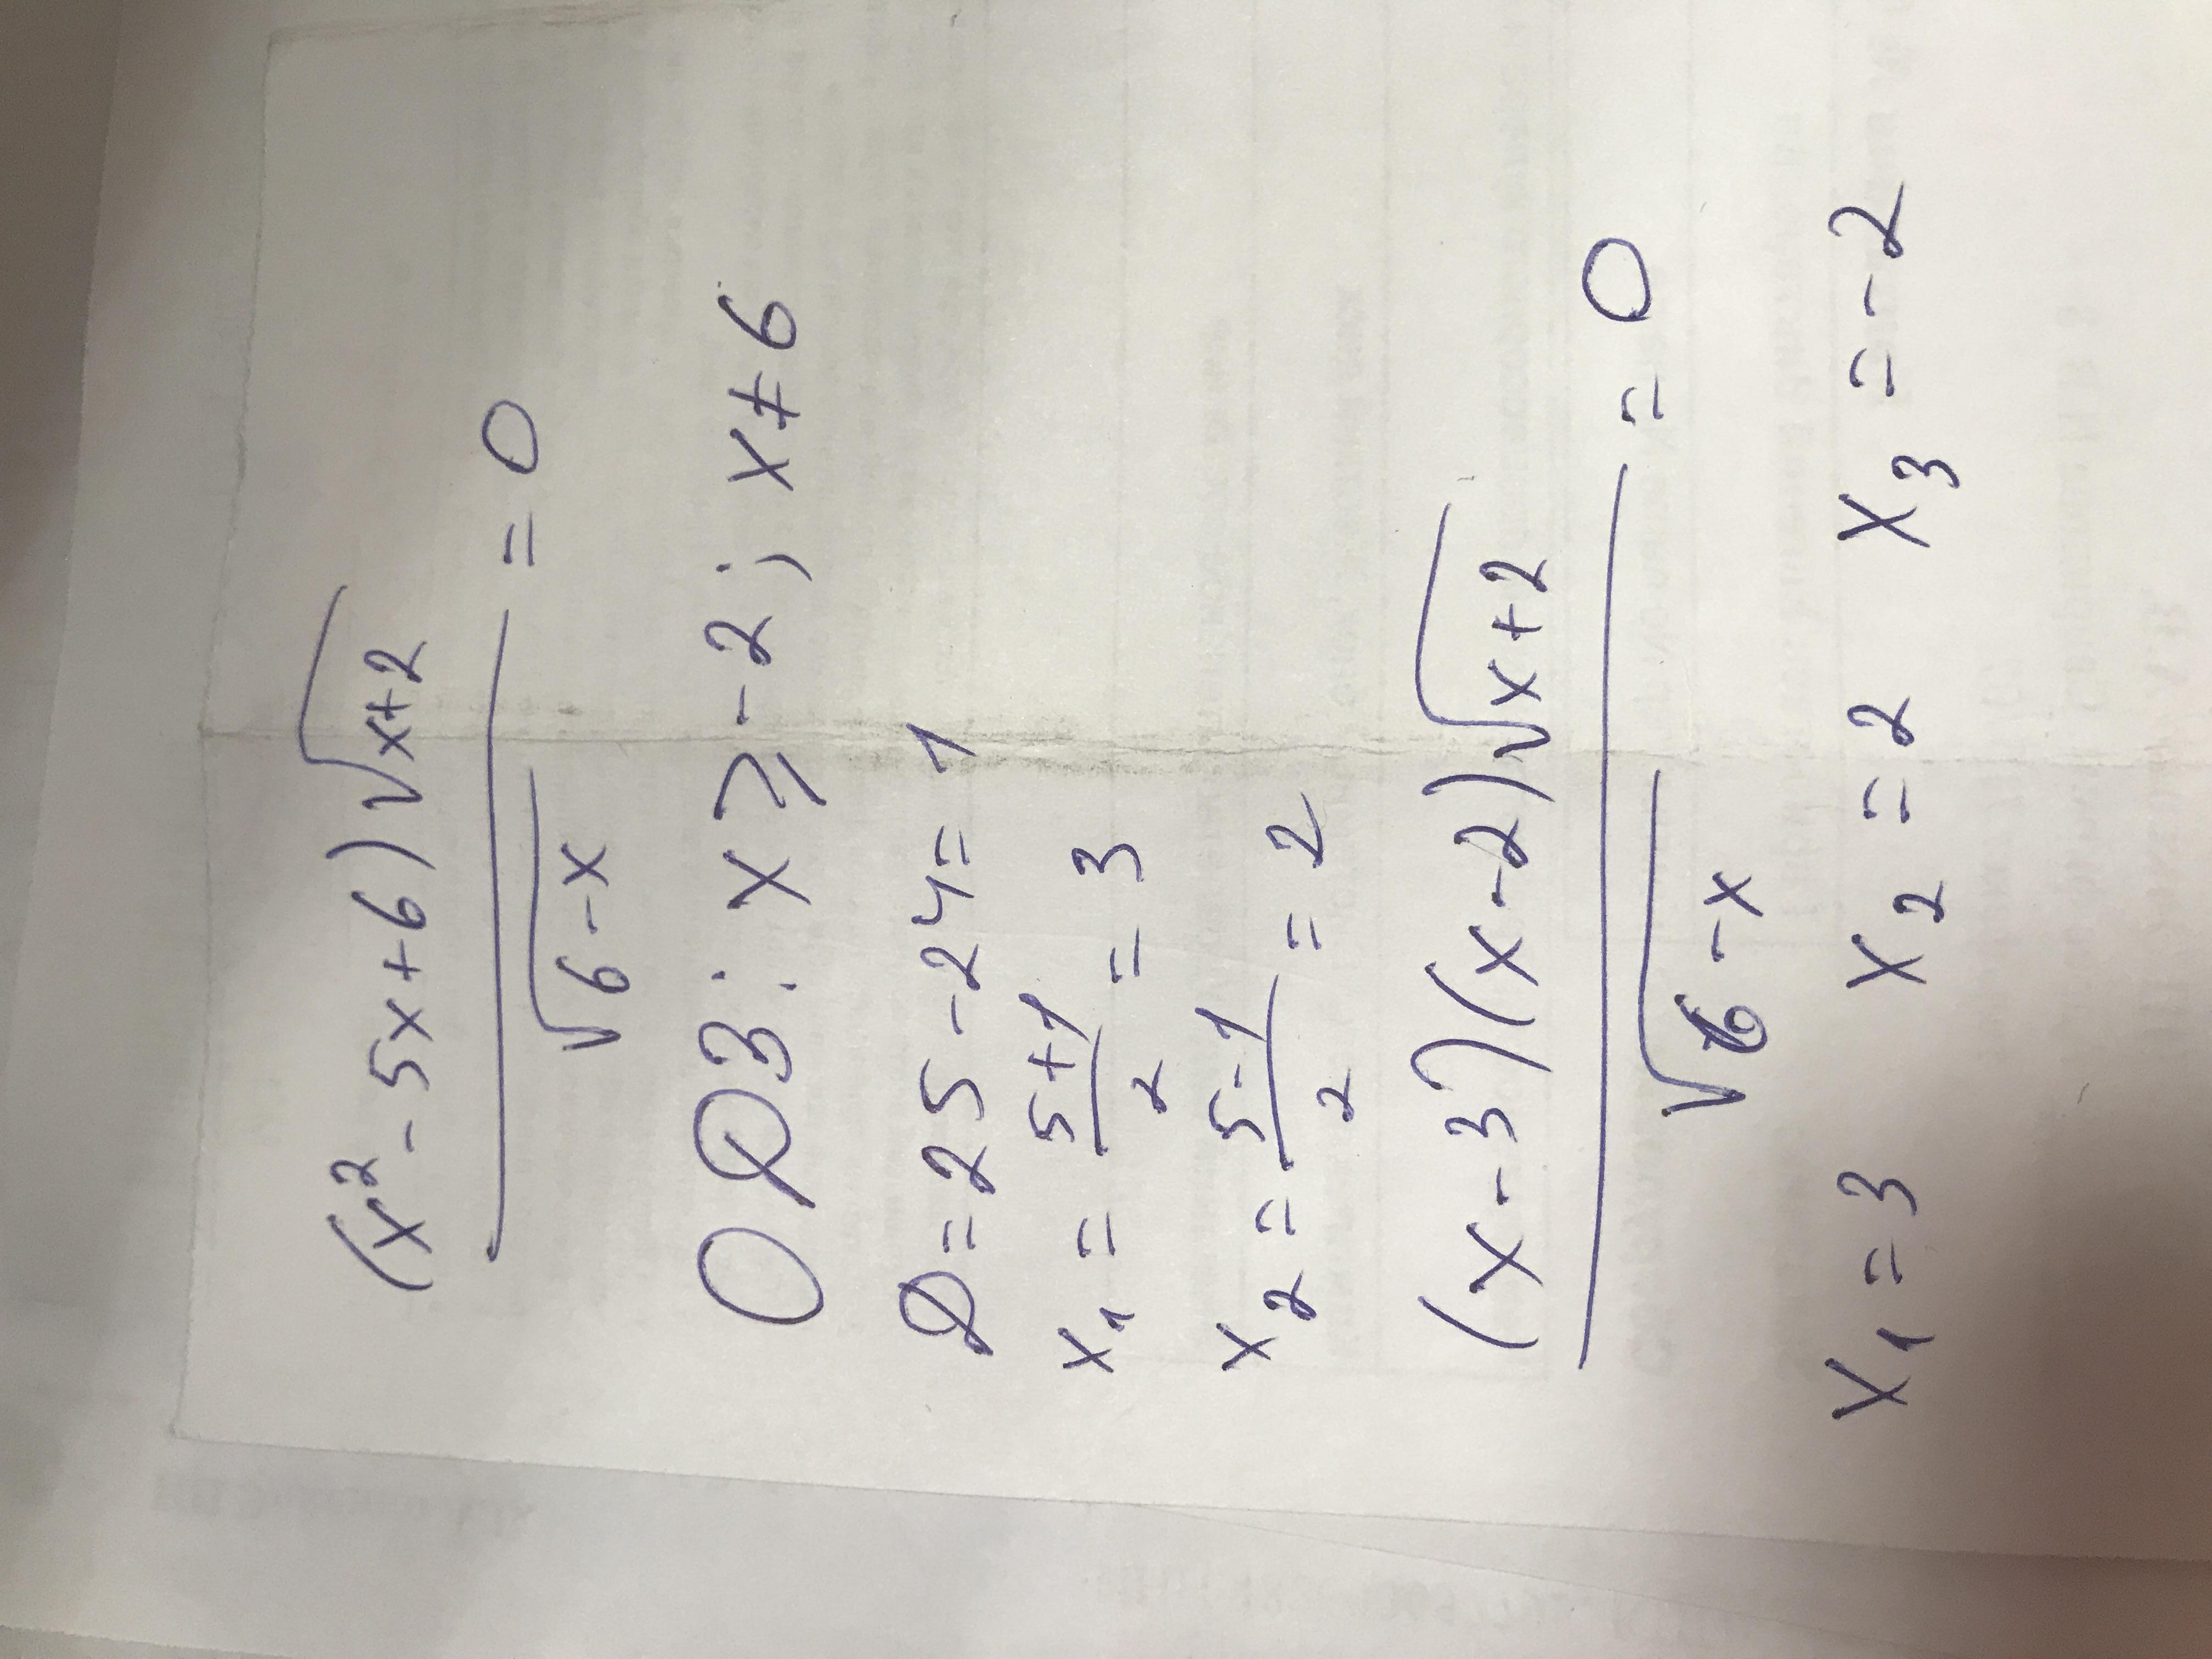 (x² - 5x + 6)√(x+2)
√(6-x)
= 0
ОДЗ: x ⩾ -2; x ≠ 6
D = 25 - 24 = 1
x₁ = (5+1)/2 = 3
x₂ = (5-1)/2 = 2
(x-3)(x-2)√(x+2)
√(6-x)
= 0
x₁ = 3 x₂ = 2 x₃ = -2